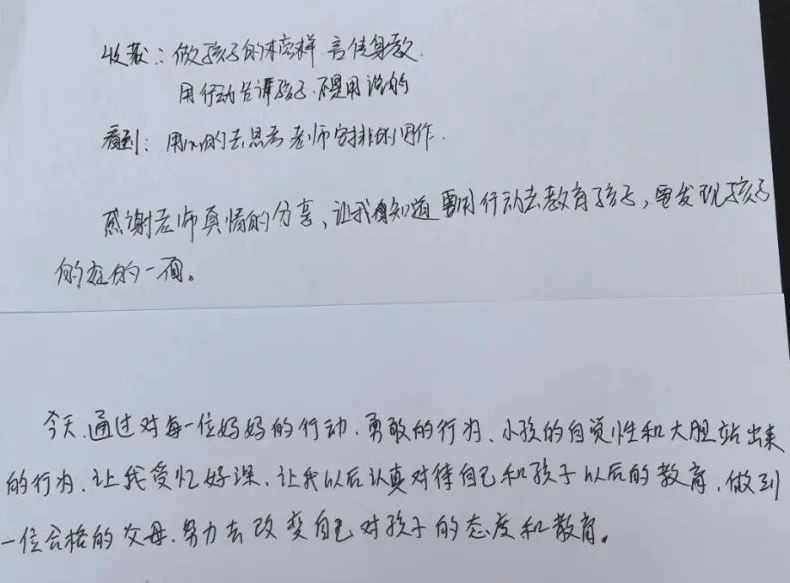 收获：做孩子的榜样 言传身教.
用行动告诉孩子.不是用说的
看到：用心的去思考老师安排的工作.
感谢老师真情的分享，让我知道要用行动去教育孩子，要发现孩子
的在的一面。
今天.通过对每一位妈妈的行动.勇敢的行为、小孩的自觉性和大胆站出来
的行为.让我受忆好深.让我以后认真对待自己和孩子以后的教育.做到
一位合格的父母.努力去改变自己对孩子的态度和教育。